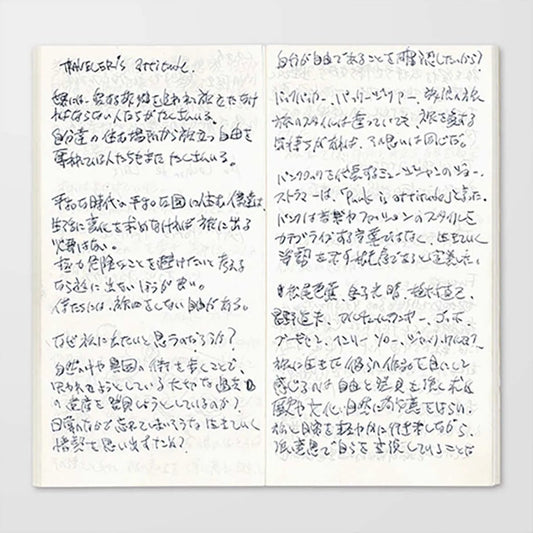 TRAVELER's attitude.
世界には、愛する故郷を追われ旅立たなけ
ればならない人たちがたくさんいる。
自分達の住む場所から旅立つ自由を
奪われている人たちもまた たくさんいる。
平和な時代の平和な国に住む僕達は、
生活に変化を求めなければ旅に出る
必要はない。
極力危険なことを避けたいと考える
なら旅に出ないほうが良い。
僕たちには、旅をしない自由がある。
なぜ旅に出たいと思うのだろうか?
自然の中や異国の街を歩くことで、
失われようとしている大切な過去
の遺産を発見しようとしているのか?
日常のなかで忘れてしまいそうな生きていく
情熱を思い出すため?
自分が自由であることを確認したいから?
バックパッカー、パッケージツアー、放浪の旅
旅のスタイルは違っていても、旅を愛する
気持ちがあれば、その思いは同じだ。
パンクロックを代表するミュージシャンのジョー・
ストラマーは、「Punk is attitude」と言った。
パンクは音楽やファッションのスタイルを
カテゴライズする言葉ではなく、生きていく
姿勢を示す態度であると定義した。
松尾芭蕉、金子光晴、植村直己、
星野道夫、
ブーゲンビル、ヘンリー・ソロー、ジャック・ケルアック
旅に生きた彼らの作品を目にして
感じるのは自由と発見を強く求め
歴史や文化、自然に対して敬意をはらい、
旅と日常を軽やかに行き来しながら、
強い意思で自らを表現していることだ